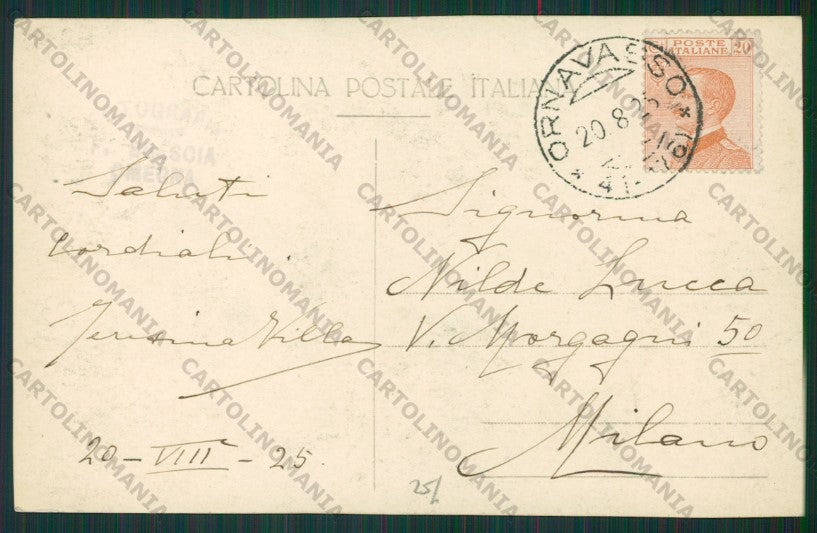 CARTOLINA POSTALE ITALIANA
POSTE
ITALIANE 20
ORNAVASSO
20.8.25
Saluti
cordiali.
Teresina Villa
20-VIII-25.
Signorina
Nilde Lucca
V. Morgagni 50
Milano
25/
CARTOLINOMANIA